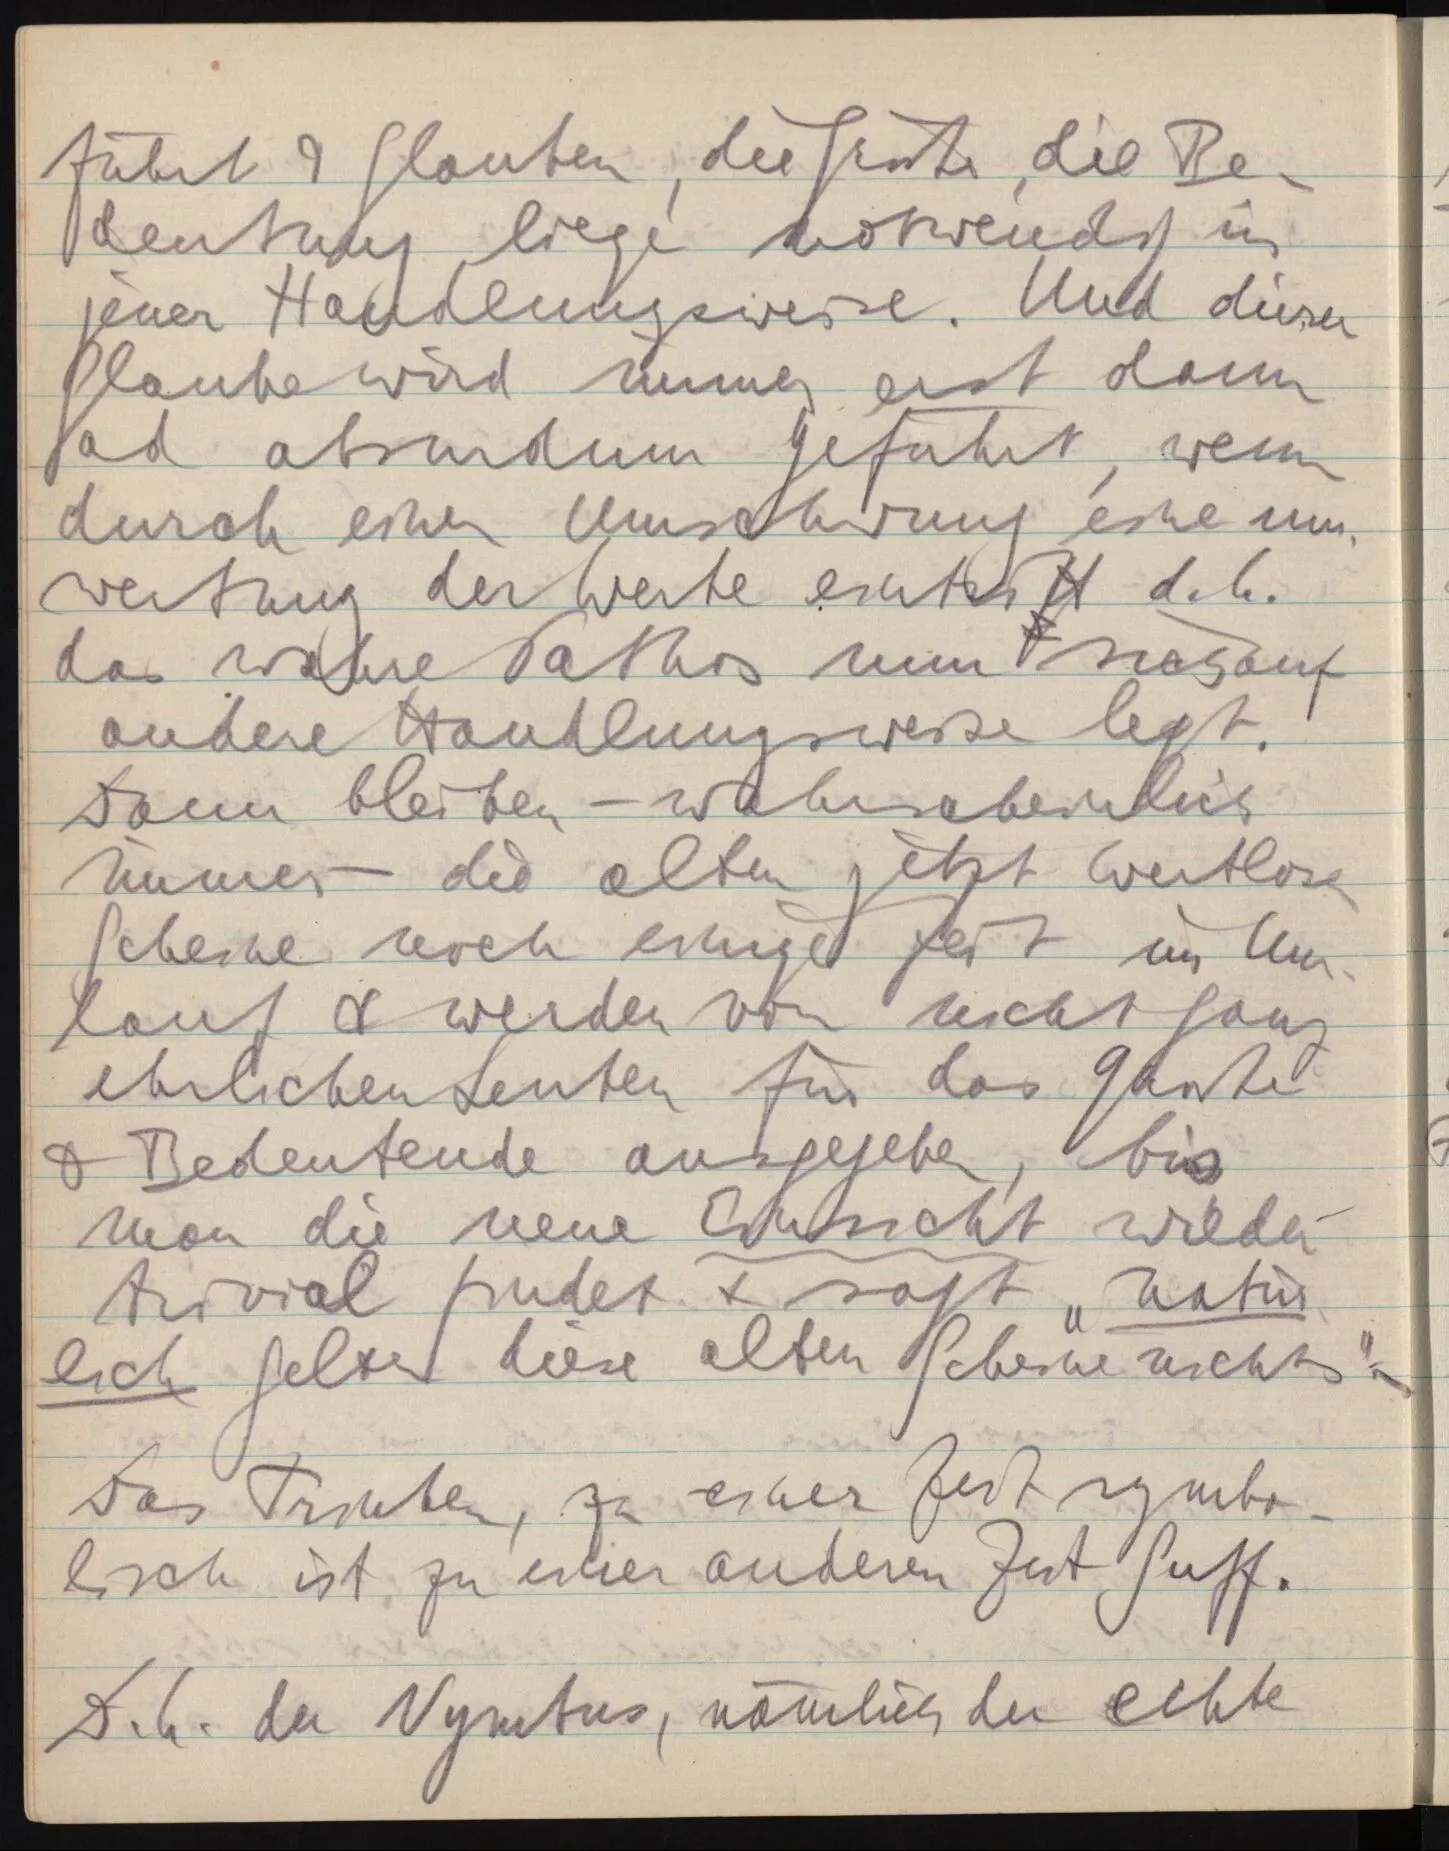 führt & Glauben, die Größe, die Be-
deutung liege notwendig in
jener Handlungsweise. Und dieser
Glaube wird immer erst dann
ad absurdum geführt, wenn
durch einen Umschwung eine um-
wertung der Werte eintritt d.h.
das wahre Pathos nun sich auf
andere Handlungsweise legt.
Dann bleiben – wahrscheinlich
immer – die alten jetzt wertlosen
Scheine noch einige Zeit im Um-
lauf & werden von nicht ganz
ehrlichen Leuten für das Große
& Bedeutende ausgegeben, bis
man die neue Einsicht wieder
trivial findet & sagt „natür
lich gelten diese alten Scheine nichts“–
Das Trinken, zu einer Zeit symbo-
lisch ist zu einer anderen Zeit Suff.
D.h. der Nymbus, nämlich der echte